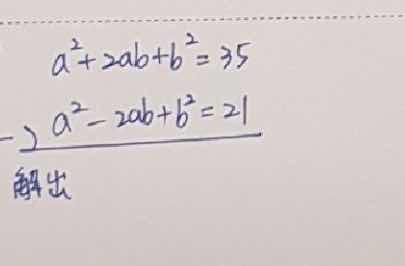 a²+2ab+b²=35
-) a²-2ab+b²=21
解出